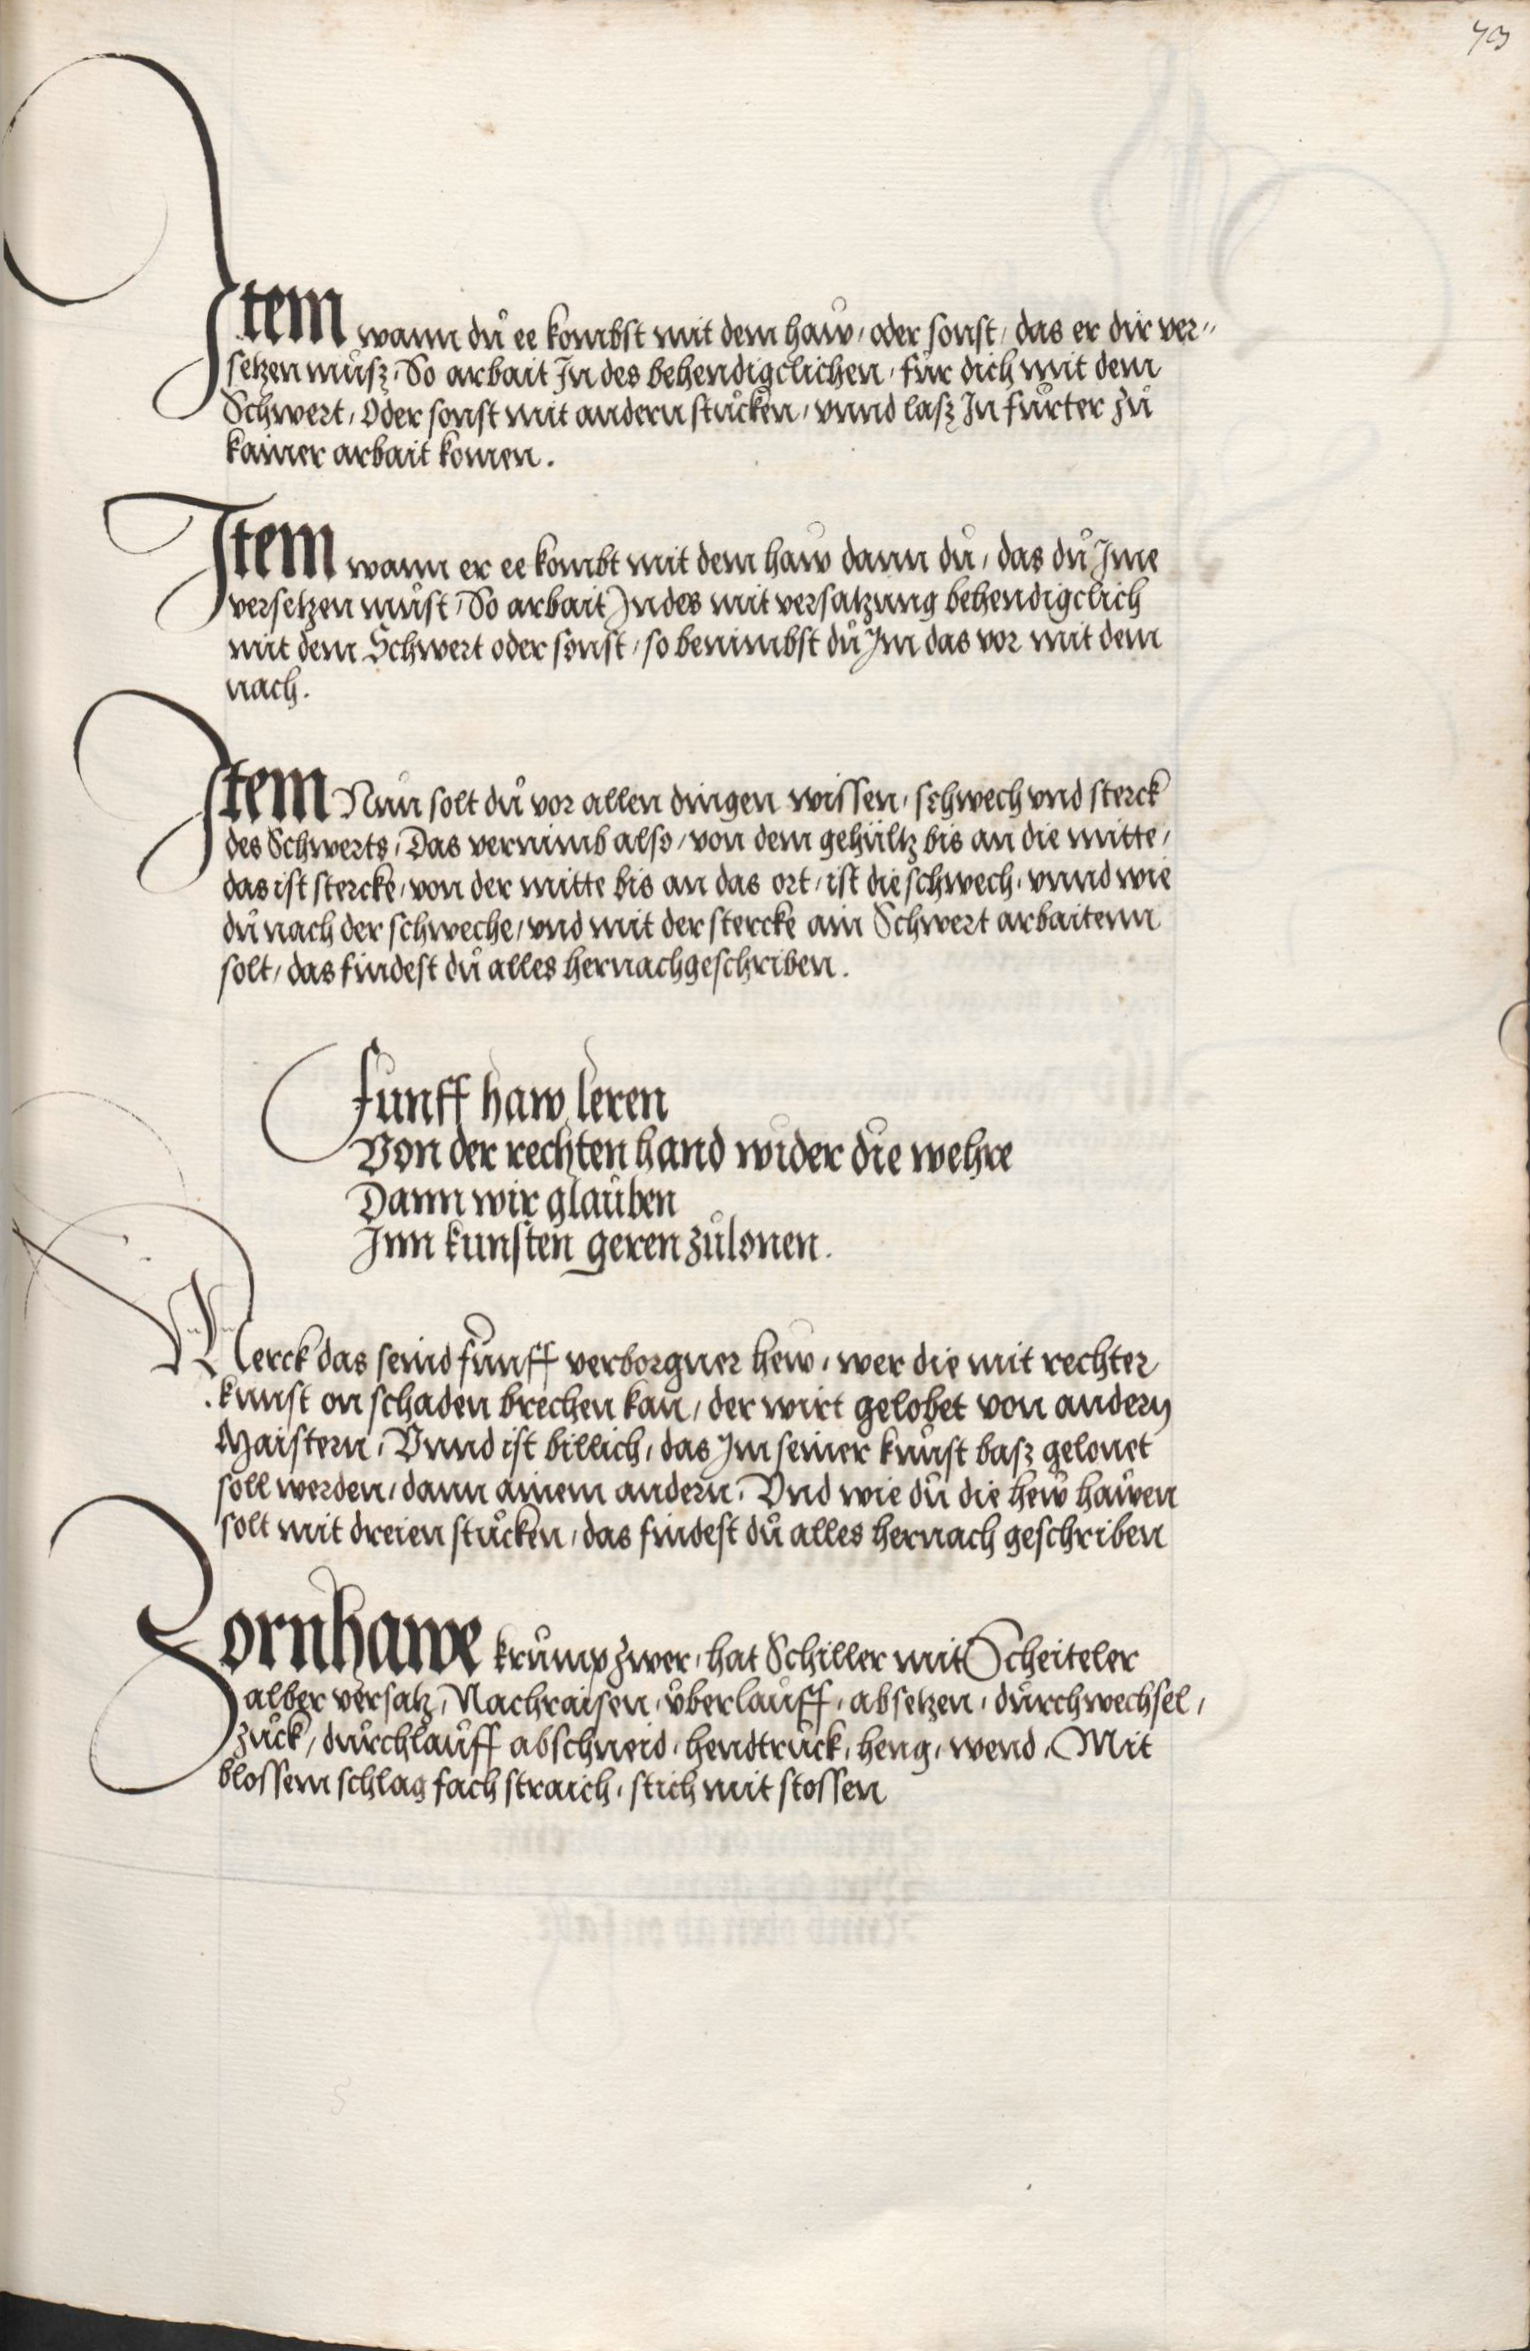 73
Item wann dů ee kombst mit dem haw, oder sonst, das er dir ver-
setzen můsz, So arbait In des behendigclichen, für dich mit dem
Schwert, Oder sonst mit andern stůcken, vnnd lasz In fůrter zů
kainer arbait komen.
Item wann er ee kombt mit dem haw dann dů, das dů Ime
versetzen můst, So arbait Indes mit versatzung behendigclich
mit dem Schwert oder sonst, so benimbst dů Im das vor mit dem
nach.
Item Nůn solt dů vor allen dingen wissen, schwech vnd sterck
des Schwerts, Das vernimb also, von dem gehültz bis an die mitte,
das ist stercke, von der mitte bis an das ort, ist die schwech, vnnd wie
dů nach der schweche, vnd mit der stercke ain Schwert arbaitenn
solt, das findest dů alles hernachgeschriben.
Funff haw leren
Von der rechten hand wider die wehre
Dann wir glaůben
Inn kunsten geren zůlonen.
Merck das seind fůnff verborgner hew, wer die mit rechter
kunst on schaden brechen kan, der wirt gelobet von andern
Maistern, Vnnd ist billich, das Im seiner kůnst basz gelonet
soll werden, dann ainem andern, Vnd wie dů die hew haůen
solt mit dreien stůcken, das findest dů alles hernach geschriben
Zornhawe krůmp zwer, hat Schiller mit Scheiteler
alber versatz, Nachraisen, ůberlaůff, absetzen, důrchwechsel,
zuck, důrchlaůff abschneid, hendtruck, heng, wend, Mit
blossem schlag fach straich, stich mit stossen